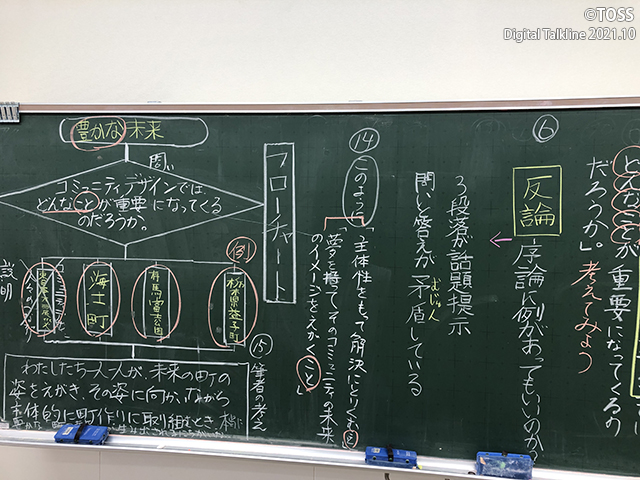 ©TOSS
Digital Talkline 2021.10
どんなことが重要になってくるの
だろうか」考えてみよう
⑥
反論 序論に例があってもいいのか
3段落が話題提示
問いと答えが矛盾している
むじゅん
⑭
このように
「主体性をもって解決にとりくむ」と
「夢を持ってそのコミュニティの未来
のイメージをえがくこと」
フローチャート
豊かな未来
問い
コミュニティデザインでは
どんなことが重要になってくる
のだろうか。
例
栃木県益子町
有馬富士公園
海士町
説明
⑮
筆者の考え
わたしたち一人一人が、未来の町の
姿をえがき、その姿に向かいながら
主体的に町作りに取り組むとき、本当に